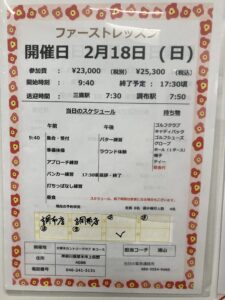 ファーストレッスン
開催日 2月18日（日）
参加費： ￥23,000 （税別） ￥25,300 （税込）
開始時刻： 9:40 終了予定：17:30頃
送迎時間： 三鷹駅 7:30 調布駅 7:50
当日のスケジュール 持ち物
午前 午後
9:40 集合・受付 パター練習
準備体操 ラウンド体験
アプローチ練習
バンカー練習 17:30頃 解散・終了
打ちっぱなし練習
ゴルフクラブ
キャディバッグ
ゴルフシューズ
グローブ
ボール（1ダース）
帽子
ティー
昼食代
開催場所
電話番号
046-241-3131
担当コーチ